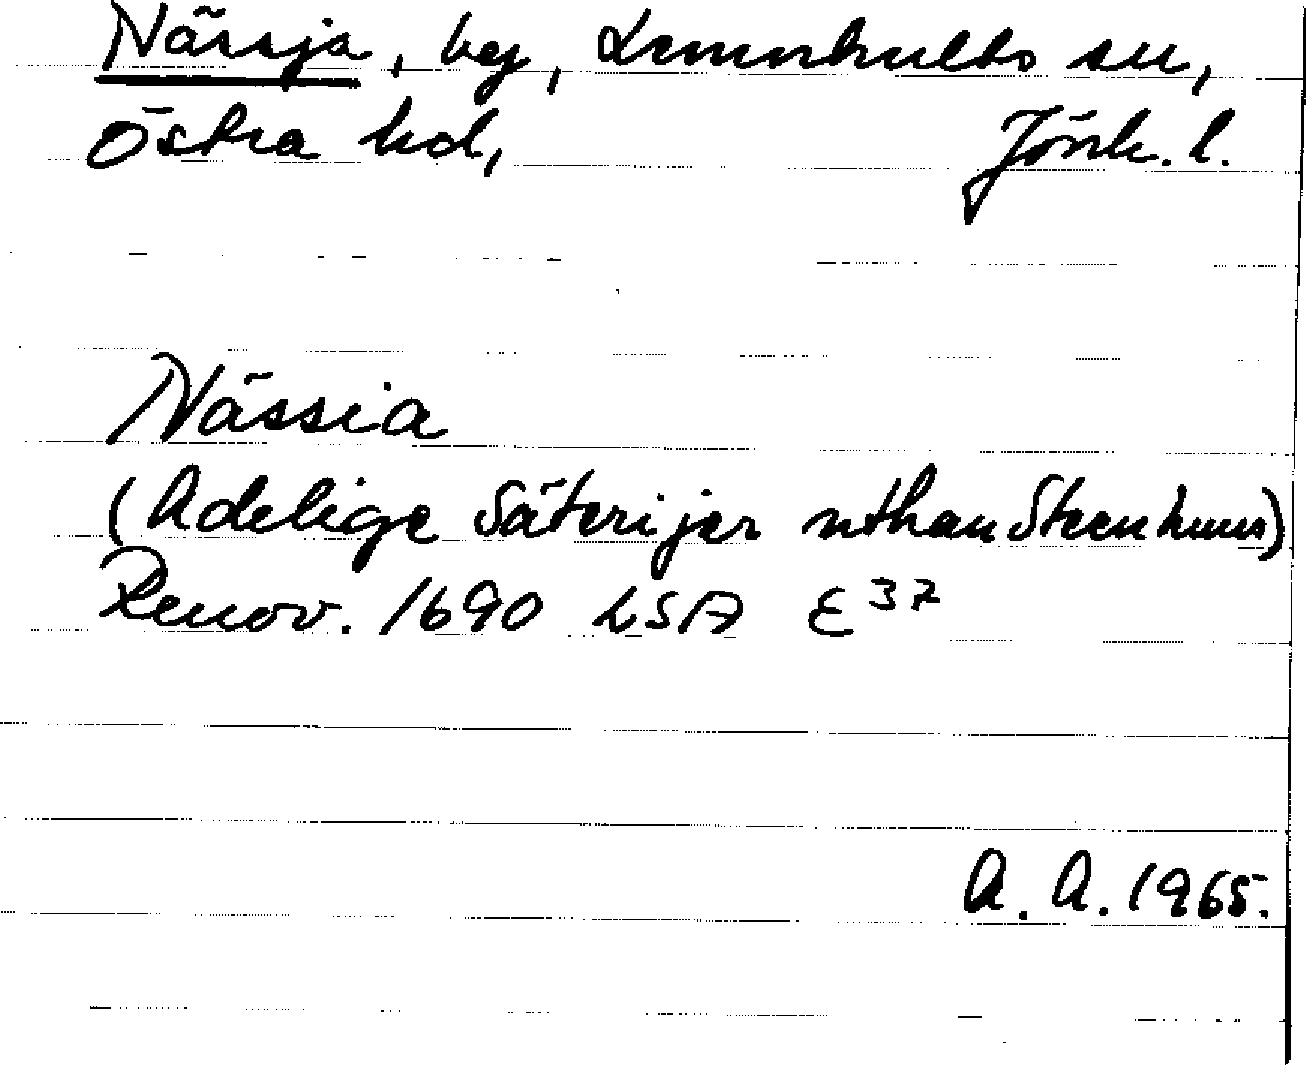 Nässja, by, Lemnhults sn,
Östra hd, Jönk. l.
Nässia
(Adelige Säterijer uthan Steenhuus)
Renov. 1690 LSA E 37
A. A. 1965.